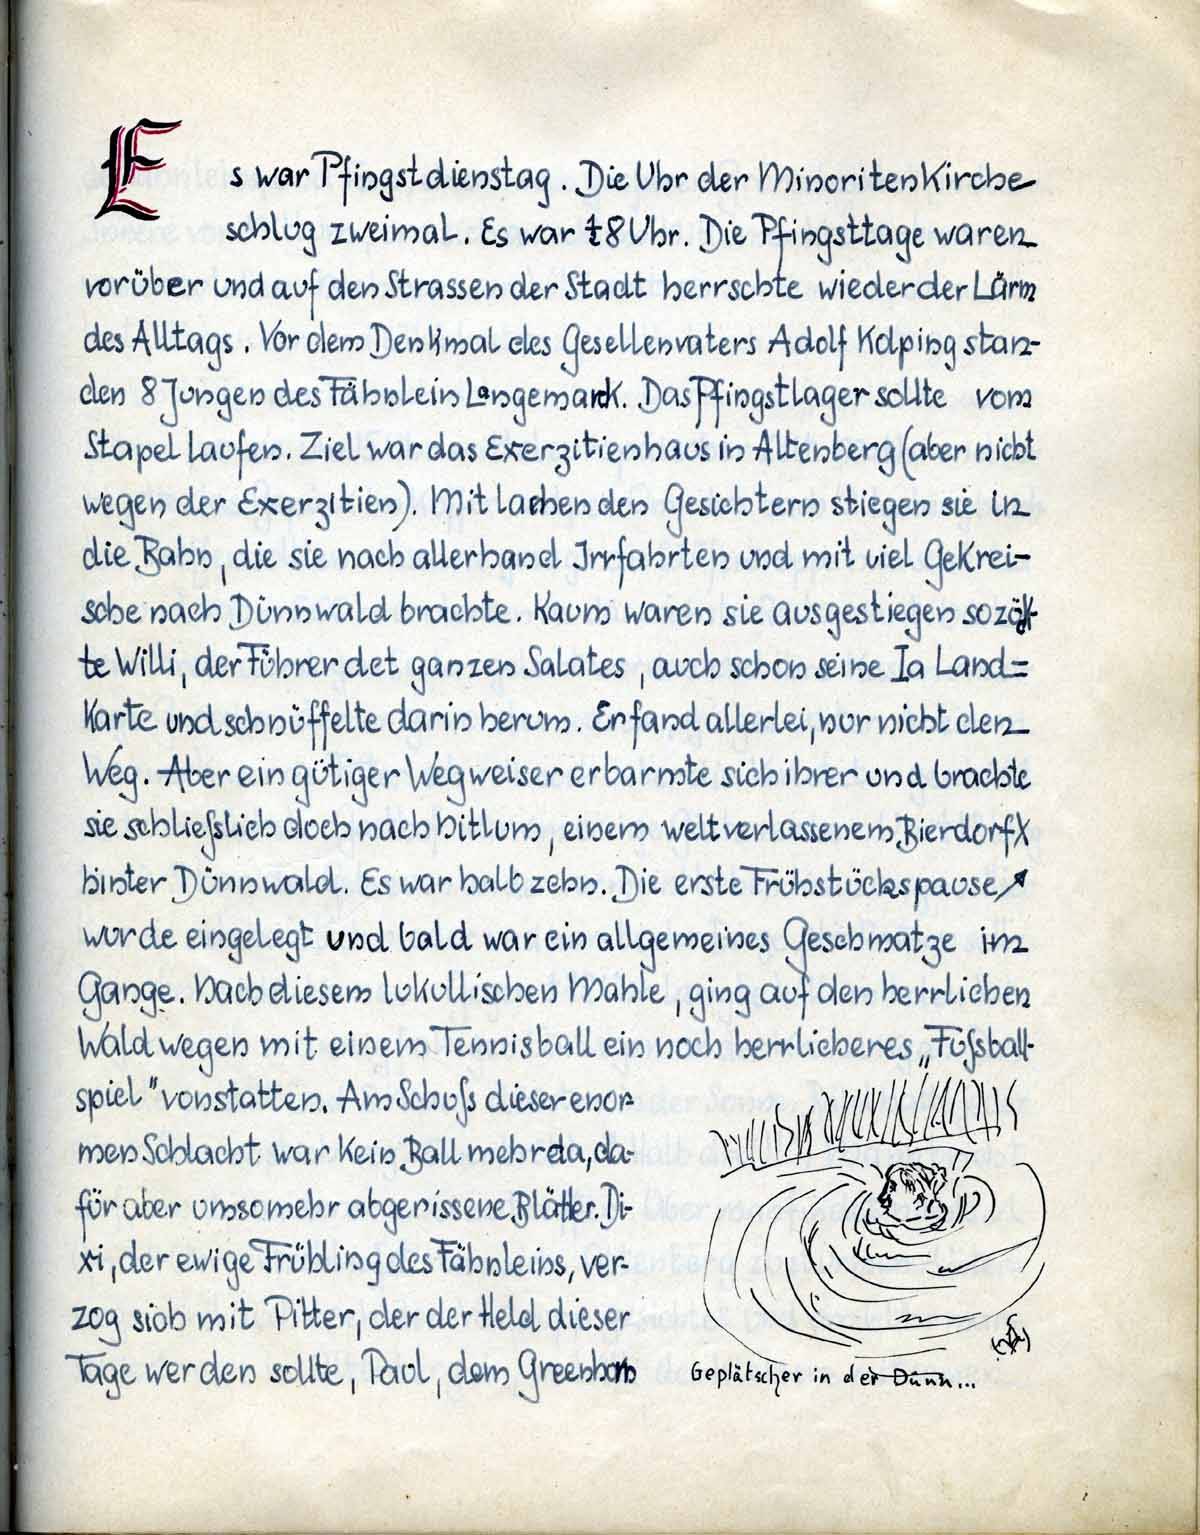 Es war Pfingstdienstag. Die Uhr der Minoriten Kirche
schlug zweimal. Es war ½ 8 Uhr. Die Pfingsttage waren
vorüber und auf den Strassen der Stadt herrschte wieder der Lärm
des Alltags. Vor dem Denkmal des Gesellenvaters Adolf Kolping stan-
den 8 Jungen des Fähnlein Langemark. Das Pfingstlager sollte vom
Stapel laufen. Ziel war das Exerzitienhaus in Altenberg (aber nicht
wegen der Exerzitien). Mit lachenden Gesichtern stiegen sie in
die Bahn, die sie nach allerhand Irrfahrten und mit viel Gekrei-
sche nach Dünnwald brachte. Kaum waren sie ausgestiegen so zök-
te Willi, der Führer det ganzen Salates, auch schon seine Ia Land=
Karte und schnüffelte darin herum. Er fand allerlei, nur nicht den
Weg. Aber ein gütiger Wegweiser erbarmte sich ihrer und brachte
sie schliesslich doch nach Hitlum, einem weltverlassenem Bierdorf X
hinter Dünnwald. Es war halb zehn. Die erste Frühstückspause
wurde eingelegt und bald war ein allgemeines Geschmatze im
Gange. Nach diesem lukullischen Mahle, ging auf den herrlichen
Waldwegen mit einem Tennisball ein noch herrlicheres „Fussball-
spiel" vonstatten. Am Schuss dieser enor-
men Schlacht war kein Ball mehr da, da-
für aber umsomehr abgerissene Blätter. Di-
xi, der ewige Frühling des Fähnleins, ver-
zog sich mit Pitter, der der Held dieser
Tage werden sollte, Paul, dem Greenhorn
Geplätscher in der Dünn...